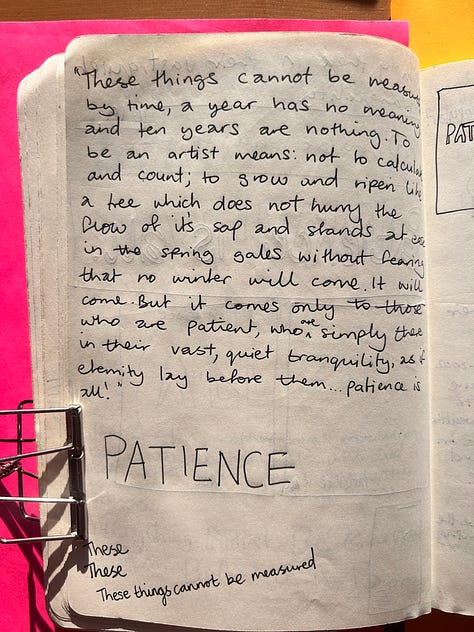 "These things cannot be measured
by time, a year has no meaning
and ten years are nothing. To
be an artist means: not to calculate
and count; to grow and ripen like
a tree which does not hurry the
flow of it's sap and stands at ease
in the spring gales without fearing
that no winter will come. It will
come. But it comes only to those
who are patient, who are simply there
in their vast, quiet tranquility, as if
eternity lay before them... patience is
all!"
PATIENCE
These
These
These things cannot be measured
PAT